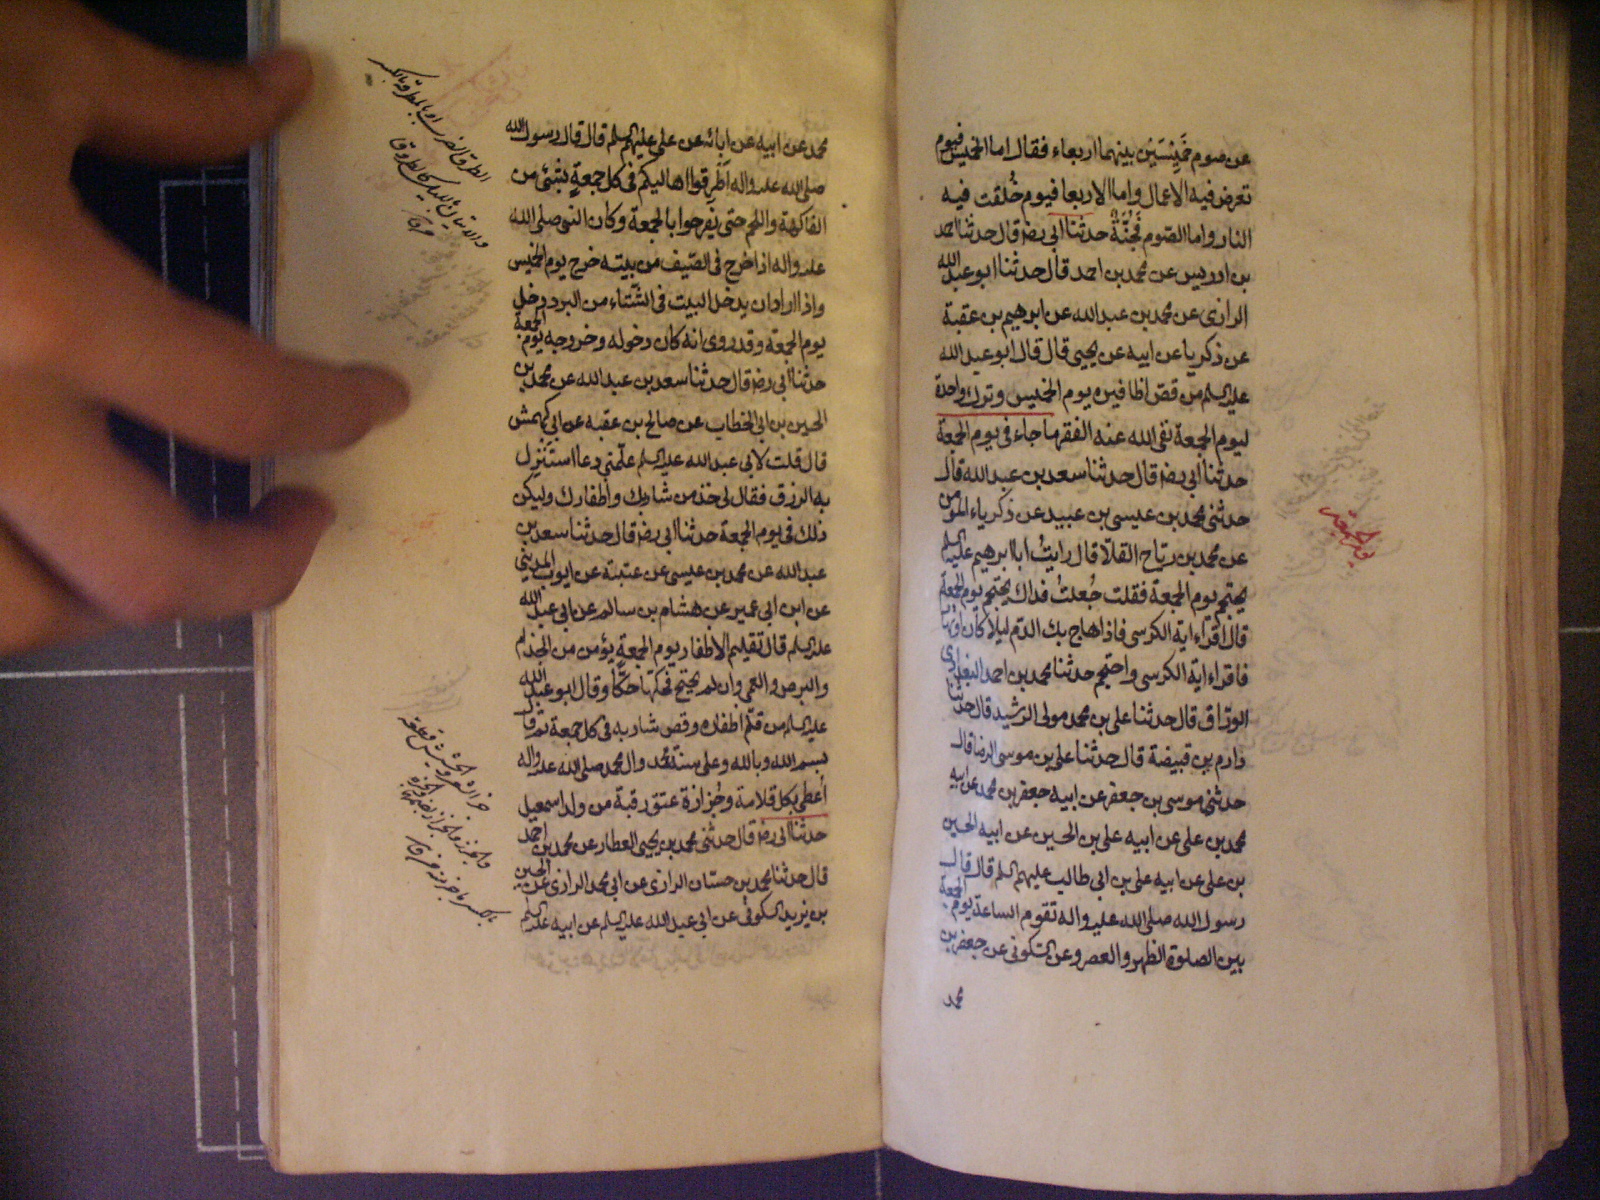 عن صوم خميسين بينهما اربعاء فقال اما الخميس فيوم
تعرض فيه الاعمال واما الاربعا فيوم خُلقت فيه
النار واما الصوم فجُنّةٌ حدثنا ابي رضه قال حدثنا احمد
بن ادريس عن محمد بن احمد قال حدثنا ابو عبد الله
الرازى عن محمد بن عبد الله عن ابرهيم بن عقبة
عن زكريا عن ابيه عن يحيى قال قال ابو عبد الله
عليه السلم من قصّ اظافيره يوم الخميس وترك واحدة
ليوم الجمعة نفى الله عنه الفقر ما جاء فى يوم الجمعة
حدثنا ابي رضه قال حدثنا سعد بن عبد الله قال
حدثنى محمد بن عيسى بن عبيد عن زكرياء المؤمن
عن محمد بن رباح القلا قال رايتُ ابا ابرهيم عليه السلم
يحتجم يوم الجمعة فقلت جُعلتُ فداك يحتجم يوم الجمعة
قال اقراء اية الكرسى فاذا هاج بك الدّم ليلا كان او نهارا
فاقراء اية الكرسى واحتجم حدثنا محمد بن احمد البغدادى
الورّاق قال حدثنا على بن محمد مولى الرّشيد قال حدثنا
دارم بن قبيصة قال حدثنا على بن موسى الرضا قال
حدثنى موسى بن جعفر عن ابيه جعفر بن محمد عن ابيه
محمد بن على عن ابيه على بن الحسين عن ابيه الحسين
بن على عن ابيه على بن ابى طالب عليهم السلم قال قال
رسول الله صلى الله عليه واله تقوم الساعة يوم الجمعة
بين الصلوة الظهر والعصر وعن السّكونى عن جعفر بن
محمد
محمد عن ابيه عن ابائه عن على عليهم السلم قال قال رسول الله
صلى الله عليه واله اطرقوا اهاليكم فى كل جمعةٍ بشئ من
الفاكهة واللحم حتى يفرحوا بالجمعة وكان النبى صلى الله
عليه واله اذا خرج فى الصّيف من بيته خرج يوم الخميس
واذا اراد ان يدخل البيت فى الشّتاء من البرد دخل
يوم الجمعة وقد روى انه كان دخوله وخروجه يوم الجمعة
حدثنا ابى رضه قال حدثنا سعد بن عبد الله عن محمد بن
الحسين بن ابى الخطاب عن صالح بن عقبه عن ابى كهمش
قال قلت لابى عبد الله عليه السلم علّمنى دعا استنزل
به الرزق فقال لى خذ من شاربك واظفارك وليكن
ذلك فى يوم الجمعة حدثنا ابى رضه قال حدثنا سعد بن
عبد الله عن محمد بن عيسى عن عن ايوب المدينى
عن ابن ابى عمير عن هشام بن سالم عن ابى عبد الله
عليه السلم قال تقليم الاظفار يوم الجمعة يؤمن من الجذام
والبرص والعمى وان لم تحتج فحكّها حكّا وقال ابو عبد الله
عليه السلم من قلّم اظفاره وقص شاربه فى كل جمعة ثم قال
بسم الله وبالله وعلى سنة محمد وال محمد صلى الله عليه واله
اُعطى بكل قلامة وجُزازة عتق رقبة من ولد اسمعيل
حدثنا ابى رضه قال حدثنى محمد بن يحيى العطار عن محمد بن احمد
قال حدثنا محمد بن حسّان الرازى عن ابى محمد الرازى عن الحسين
بن يزيد السكونى عن ابى عبد الله عليه السلم عن ابيه عليه السلم